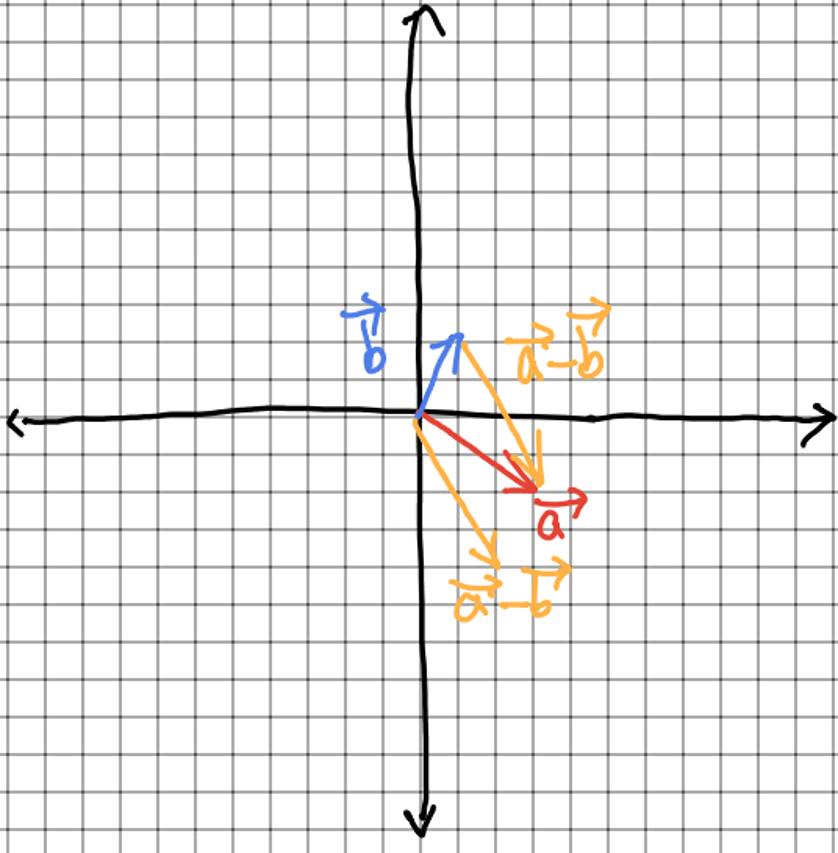 $\vec{b}$
$\vec{a}-\vec{b}$
$\vec{a}$
$\vec{a}-\vec{b}$